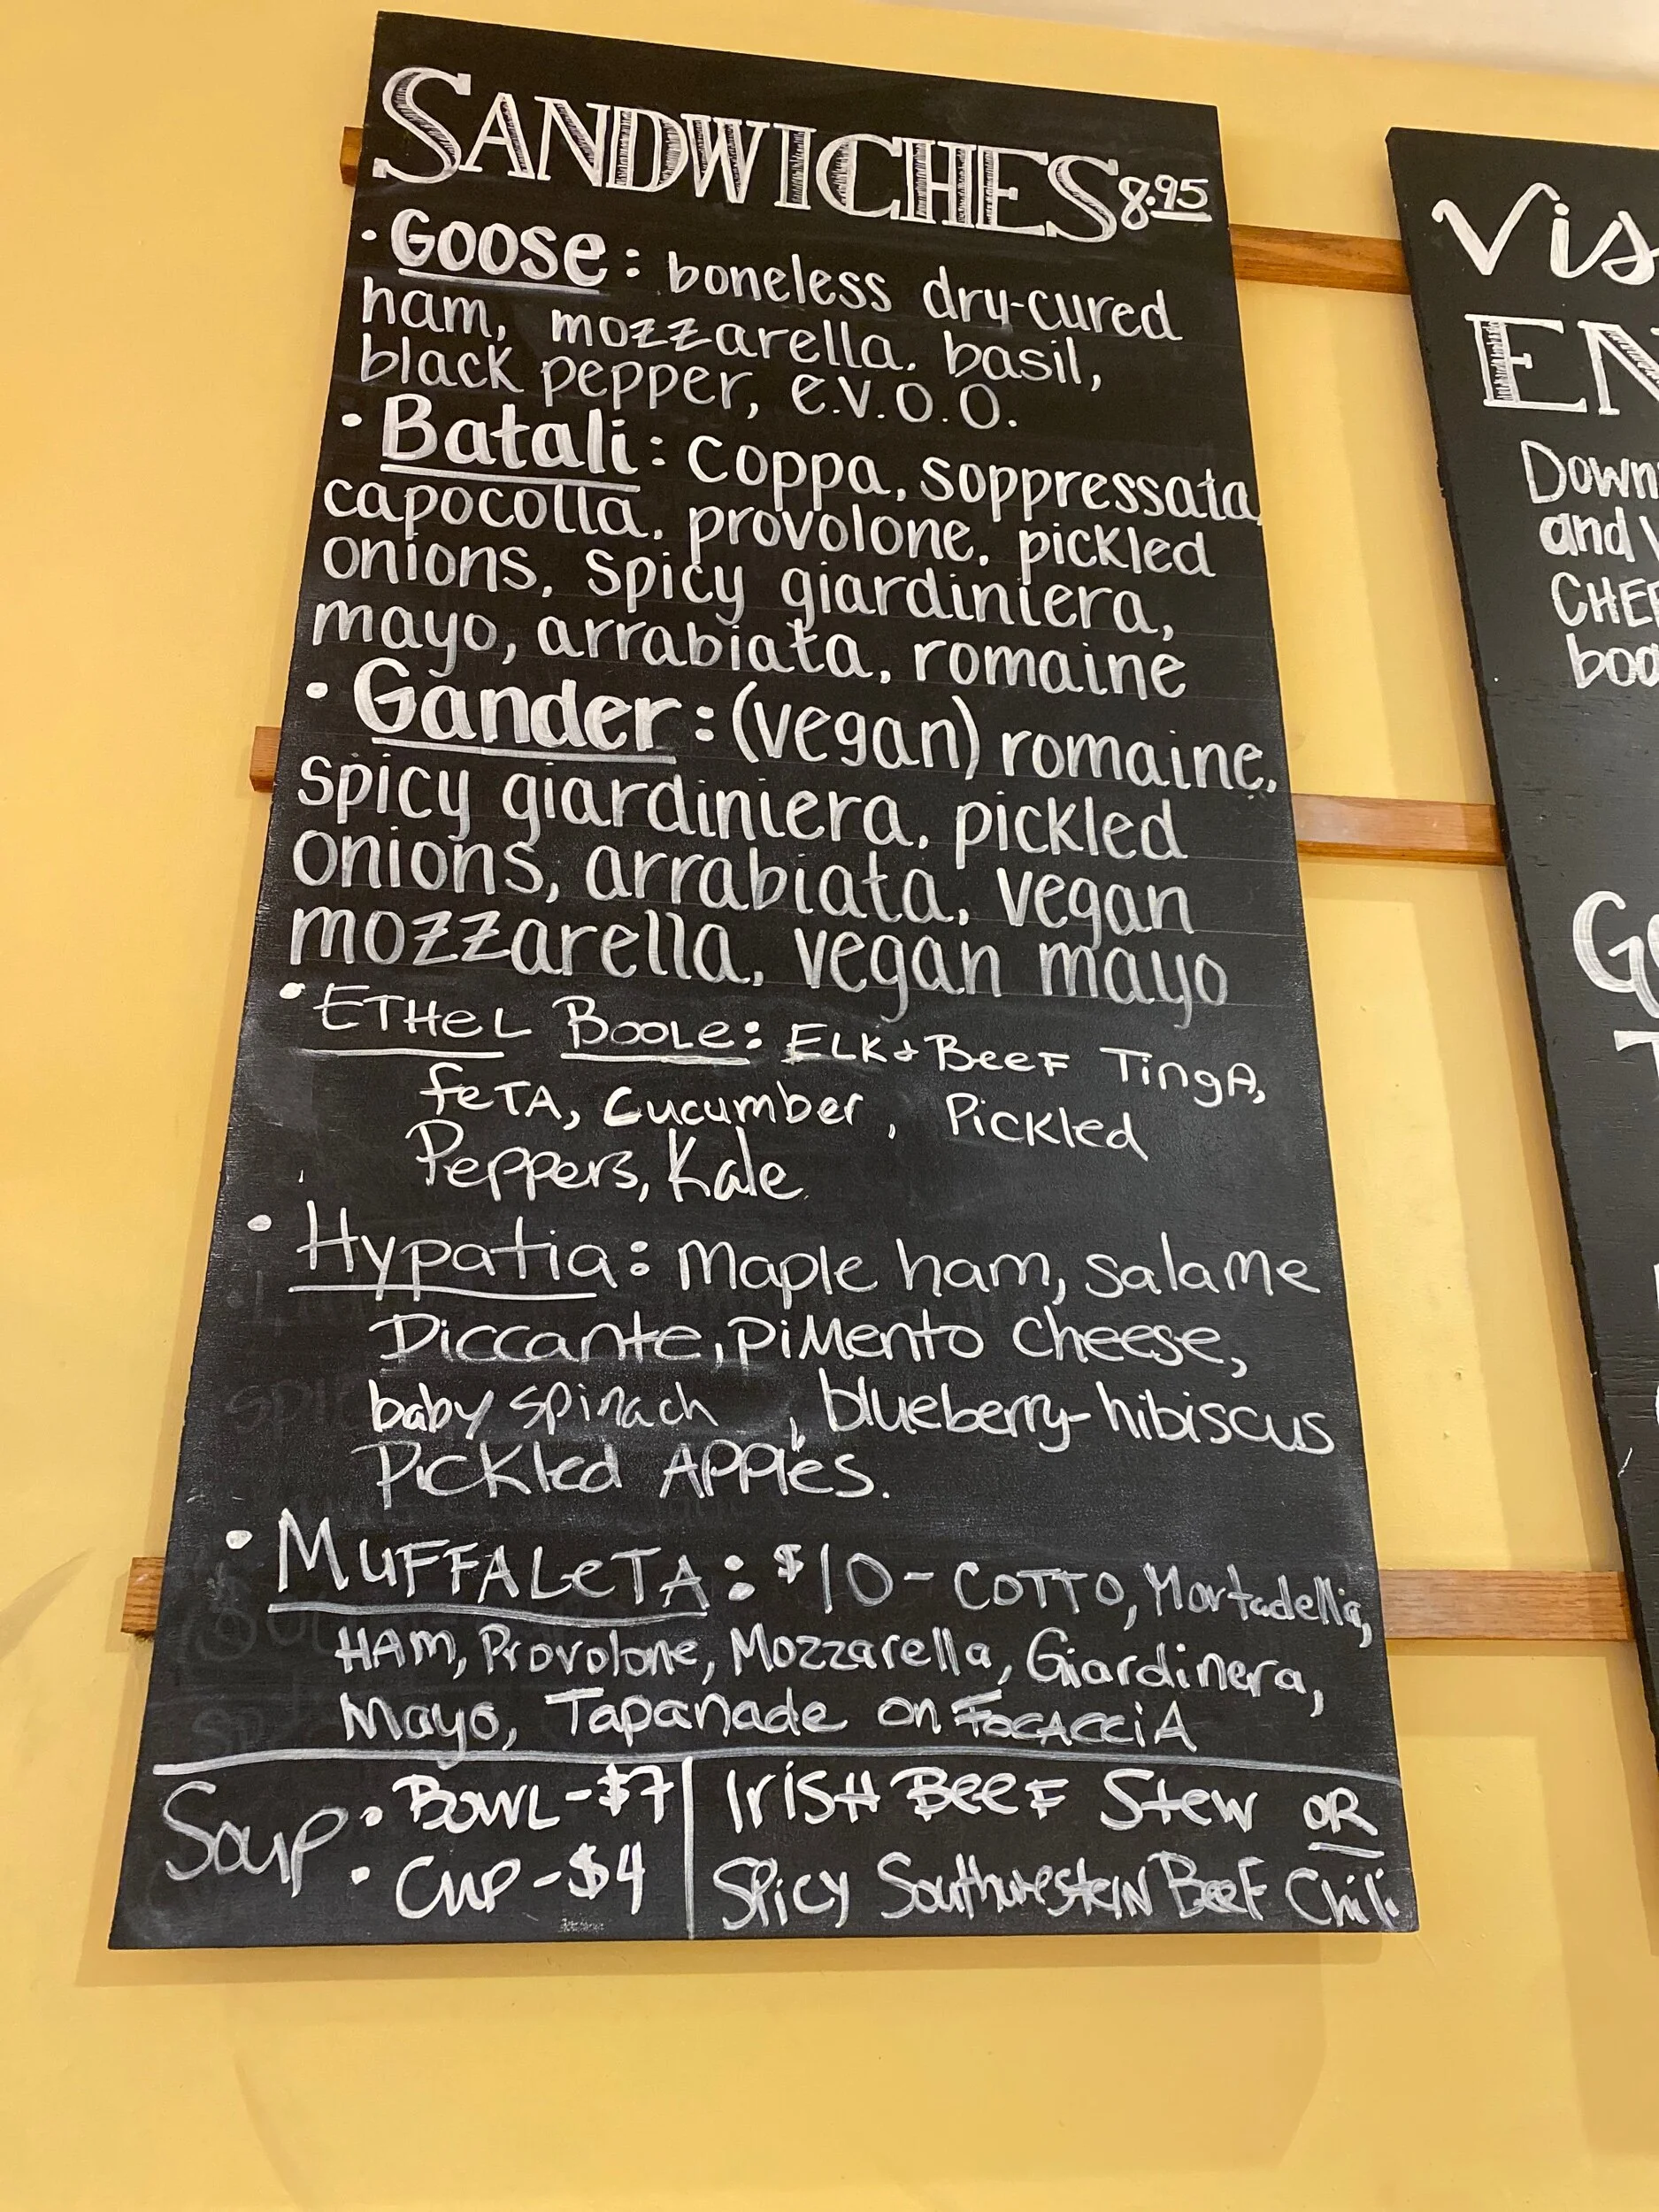 SANDWICHES 8.95
• Goose: boneless dry-cured
ham, mozzarella, basil,
black pepper, e.v.o.o.
• Batali: coppa, soppressata,
capocolla, provolone, pickled
onions, spicy giardiniera,
mayo, arrabiata, romaine
• Gander: (vegan) romaine,
spicy giardiniera, pickled
onions, arrabiata, vegan
mozzarella, vegan mayo
• ETHeL BooLe: ELK + BeeF TingA,
feTA, Cucumber, Pickled
Peppers, Kale
• Hypatia: Maple ham, salame
Diccante, piMento cheese,
baby spinach, blueberry-hibiscus
Pickled APPles.
• MuFFALeTA: $10 - COTTO, Mortadella,
HAM, Provolone, Mozzarella, Giardinera,
Mayo, Tapanade on FocAcciA
Soup • BowL - $7 | IrisH BeeF Stew OR
• Cup - $4 | Spicy SouthwesteIN BeeF Chili
Vis
EN
Down
and
CHEE
boa